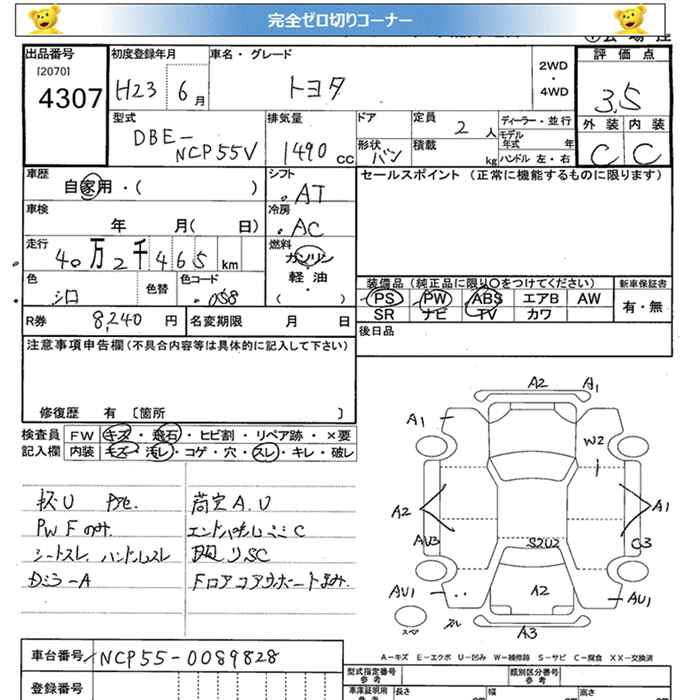 完全ゼロ切りコーナー
出品番号
[2070]
4307
初度登録年月
H23 6月
車名・グレード
トヨタ
2WD
・
4WD
評価点
3.5
外装 内装
C C
型式
DBE-
NCP55V
排気量
1490 CC
ドア
形状
バン
定員
2人
積載
kg
ディーラー・並行
モデル
年式 年
ハンドル 左・右
車歴
自家用・( )
シフト
AT
セールスポイント(正常に機能するものに限ります)
車検
年 月( 日)
冷房
AC
走行
40万2千465km
燃料
ガソリン
軽・油
( )
色
シロ
色替
色コード
058
装備品(純正品に限り○をつけてください)
新車保証書
PS PW ABS エアB AW
SR ナビ TV カワ
有・無
R券
8,240円
名変期限 月 日
後日品
注意事項申告欄(不具合内容等は具体的に記入して下さい)
修復歴 有 [箇所 ]
検査員
記入欄
FW キズ・飛石・ヒビ割・リペア跡・×要
内装 キズ・汚レ・コゲ・穴・スレ・キレ・破レ
PW Fのみ
シートスレ、ハンドルスレ
荷室A.U
A2 A1
A1
W2
A2
A1
AU3
S2U2
C3
AU1
A2
AU1
スペア
A3
A-キズ E-エクボ U-凹み W-補修跡 S-サビ C-腐食 XX-交換済
車台番号 NCP55-0089828
登録番号
型式指定番号
参考
類別区分番号
参考
車庫証明用
参考
長さ
幅
高さ